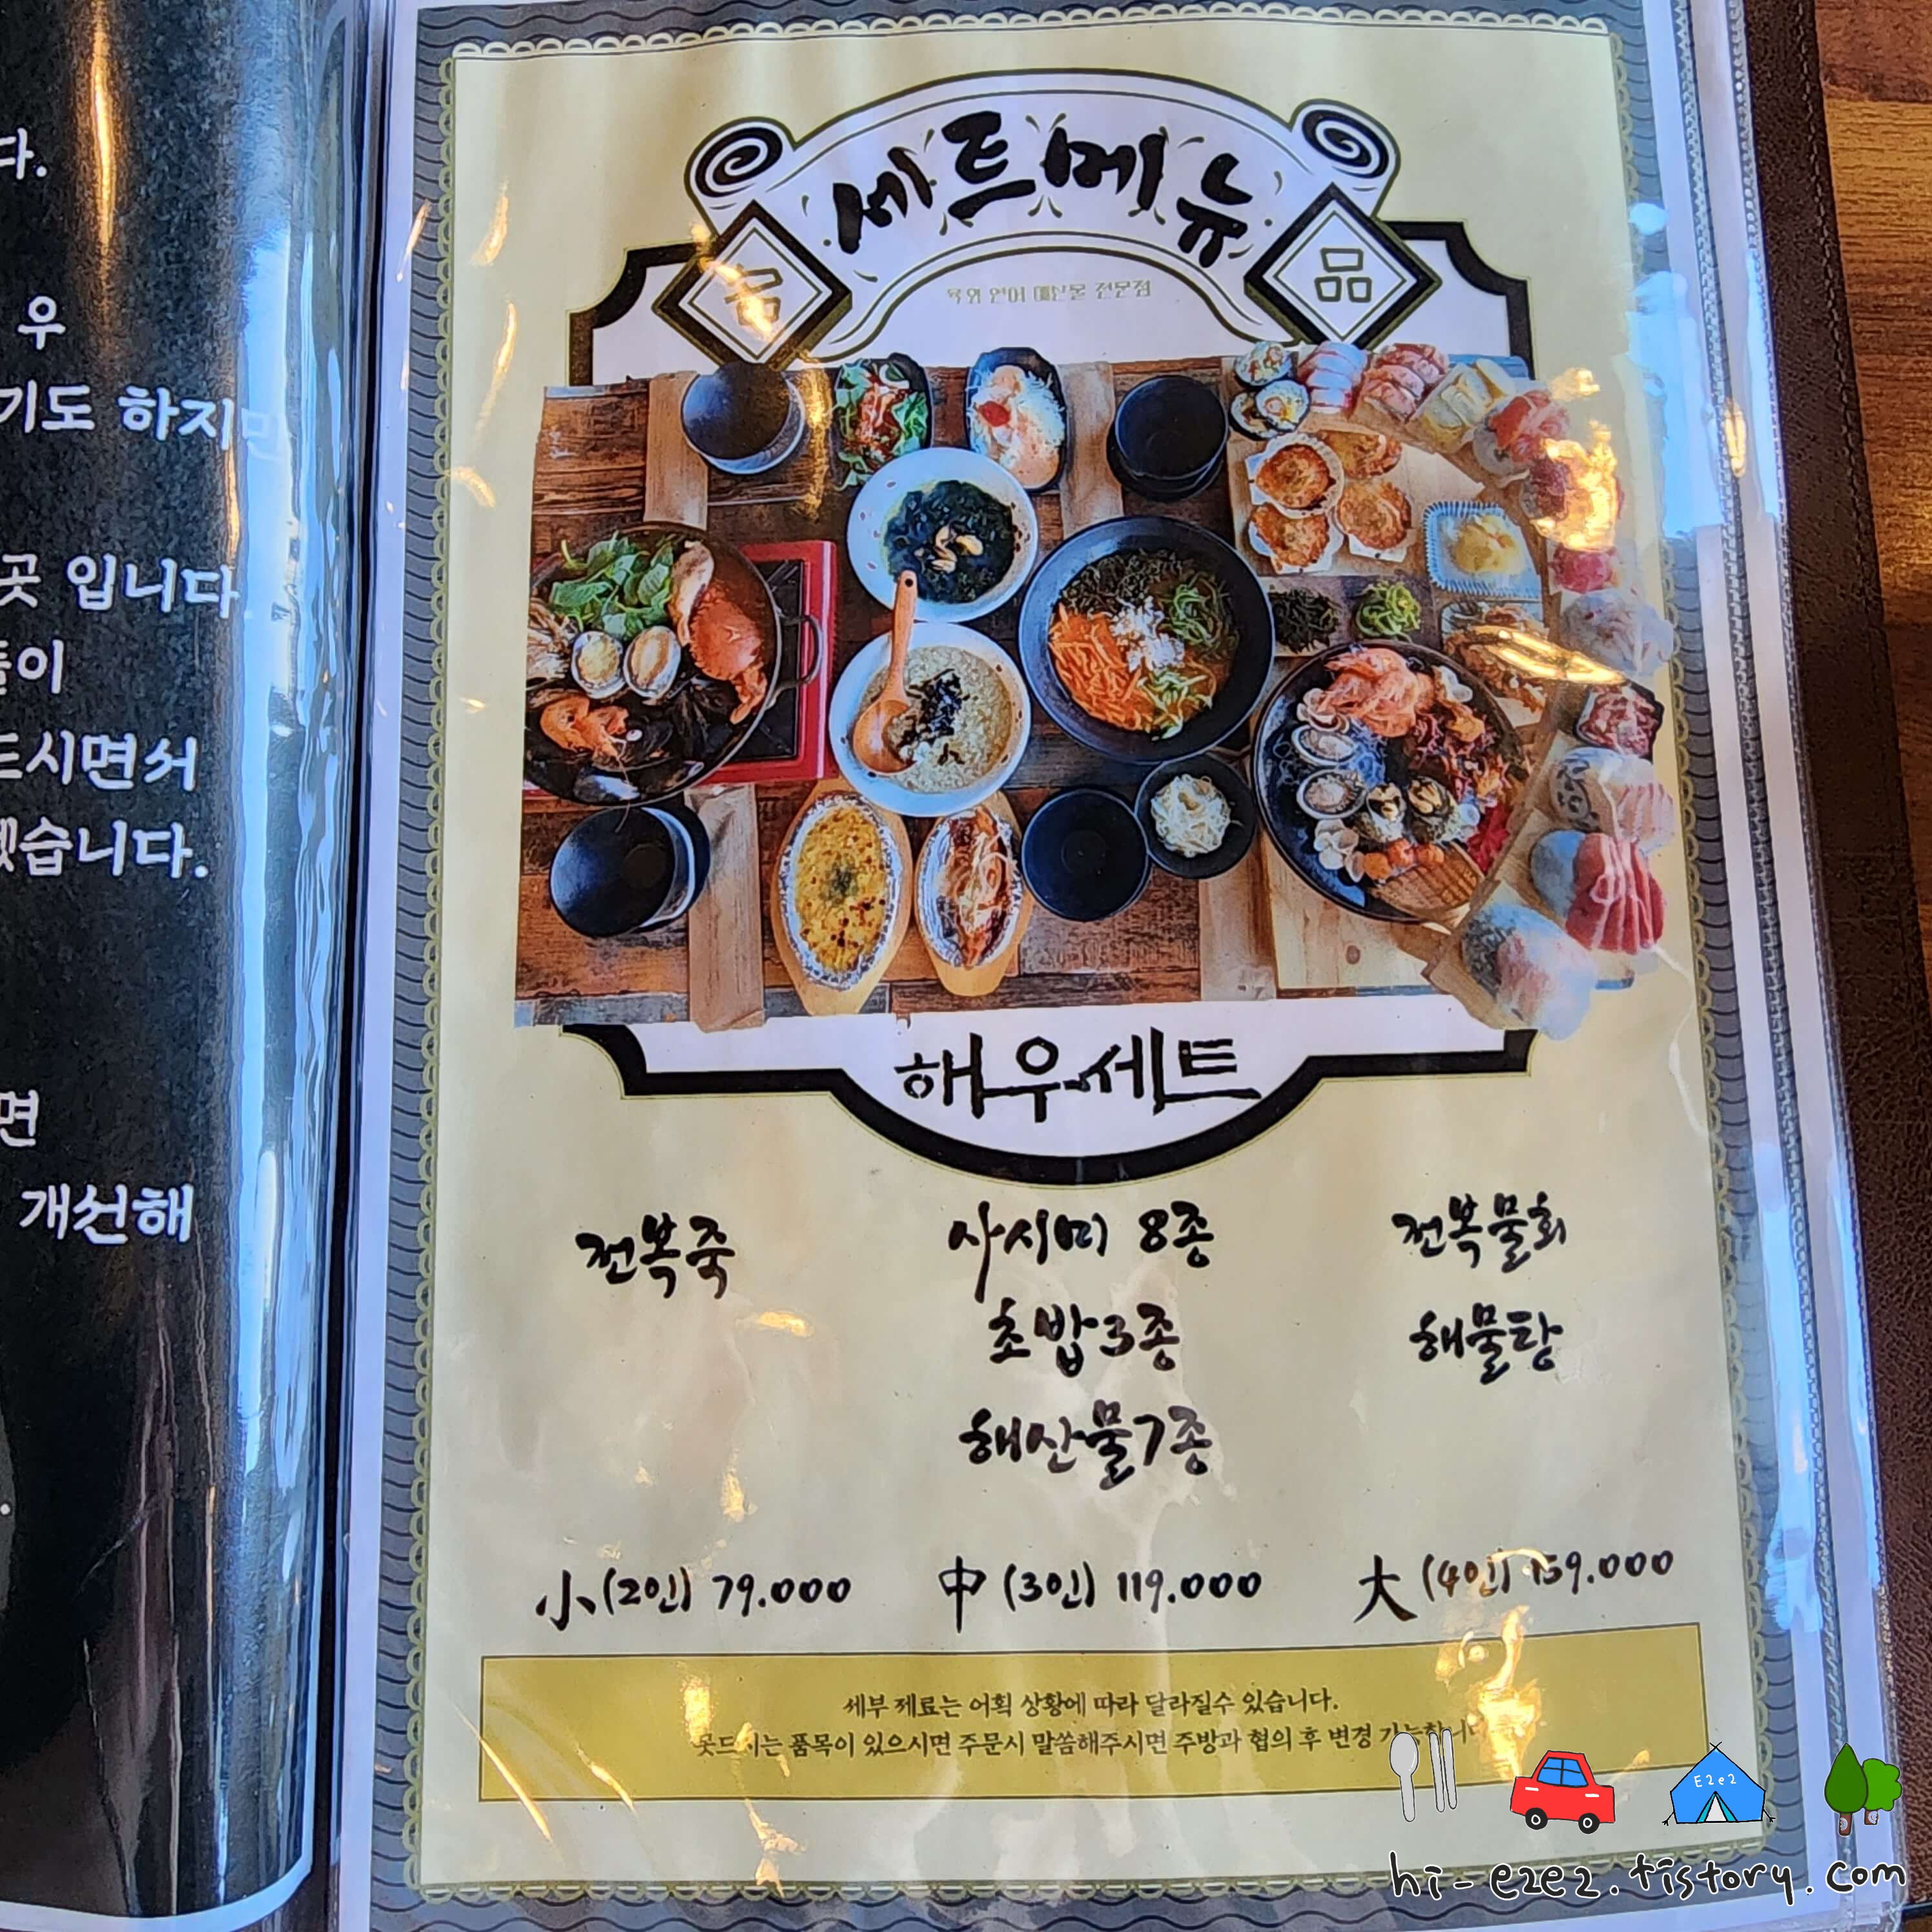 다.
우
기도 하지만
곳 입니다
들이
드시면서
겠습니다.
면
개선해
세트메뉴
品
品
육회 연어 해산물 전문점
해우세트
전복죽
사시미 8종
초밥3종
해산물7종
전복물회
해물탕
小(2인) 79.000
中 (3인) 119.000
大 (4인) 159.000
세부 제료는 어획 상황에 따라 달라질수 있습니다.
못드시는 품목이 있으시면 주문시 말씀해주시면 주방과 협의 후 변경 가능합니다
E2e2
hi-e2e2.tistory.com